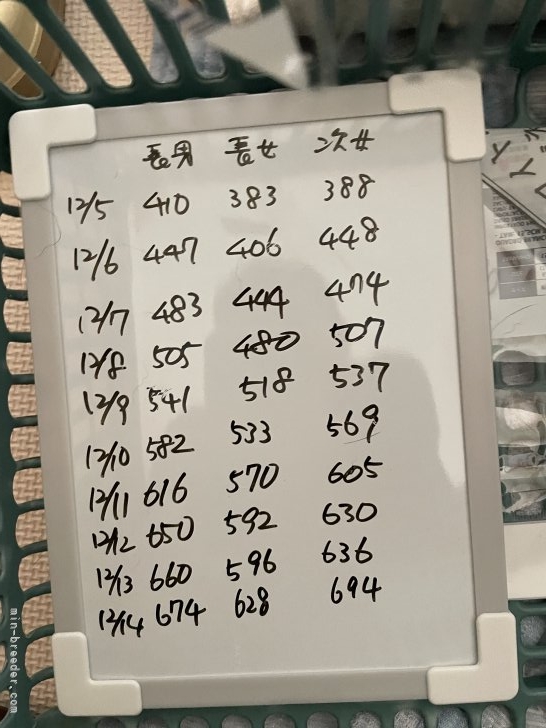 長男 長女 次女
12/5 410 383 388
12/6 447 406 448
12/7 483 444 474
12/8 505 480 507
12/9 541 518 537
12/10 582 533 569
12/11 616 570 605
12/12 650 592 630
12/13 660 596 636
12/14 674 628 694
min-breeder.com